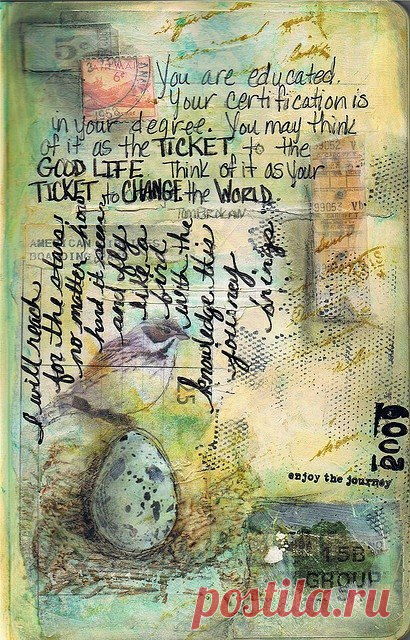 5¢
3-7 PM
6¢
1959
You are educated.
Your certification is
in your degree. You may think
of it as the TICKET to the
GOOD LIFE. Think of it as your
TICKET to CHANGE the WORLD.
TOM BROKAW
99052 V
99053 Vb
AMERICAN
BOARDING
I will reach
for the stars!
no matter how
hard it seems
and fly
like a
bird
with the
knowledge this
journey
brings
2009
enjoy the journey
15B
GROUP
postila.ru